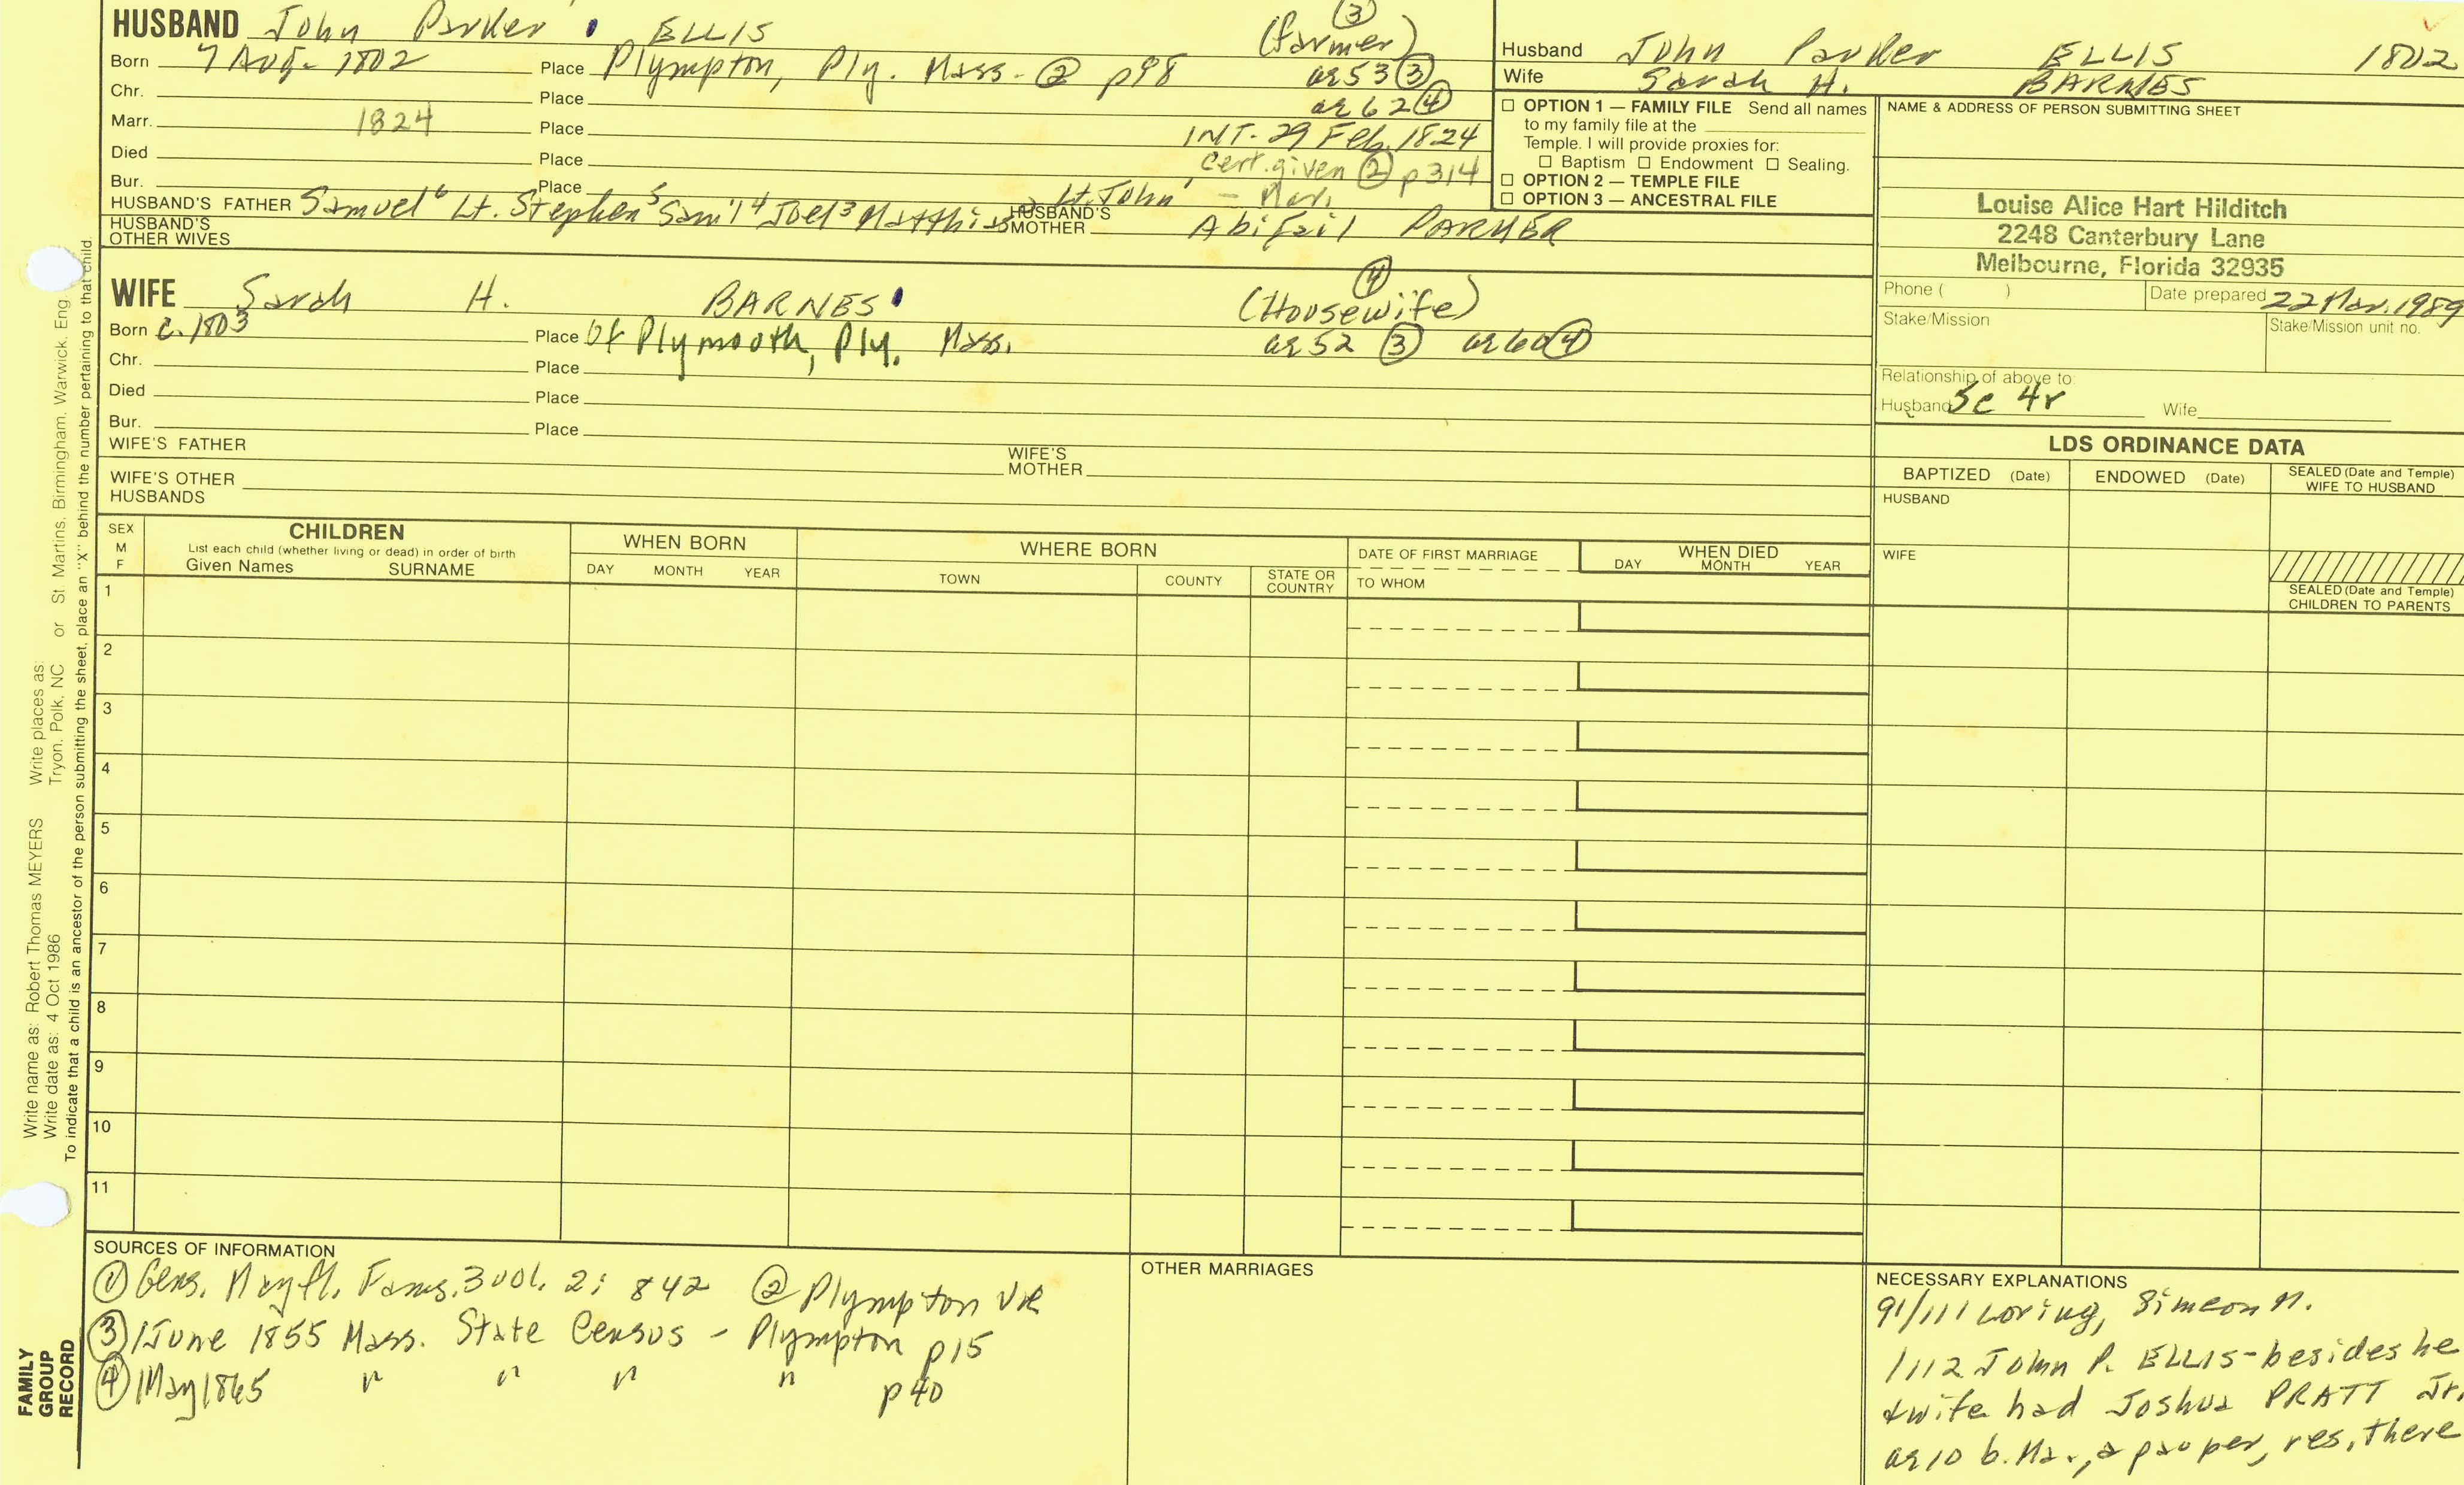 HUSBAND John Parker ELLIS (farmer) ③
Born 7 Aug. 1802 Place Plympton, Ply. Mass. ② p98 ae 53 ③
Chr. Place ae 62 ④
Marr. 1824 Place INT. 29 Feb. 1824
Died Place Cert. given ② p 314
Bur. Place Lt. John¹ - Mar.
HUSBAND'S FATHER Samuel⁶ Lt. Stephen⁵ Sam'l⁴ Joel³ Matthias² HUSBAND'S MOTHER Abigail PARKER
HUSBAND'S OTHER WIVES
WIFE Sarah H. BARNES (Housewife) ④
Born c. 1803 Place Of Plymouth, Ply. Mass. ae 52 ③ ae 60 ④
Chr. Place
Died Place
Bur. Place
WIFE'S FATHER WIFE'S MOTHER
WIFE'S OTHER HUSBANDS
Husband John Parker ELLIS 1802
Wife Sarah H. BARNES
☐ OPTION 1 — FAMILY FILE Send all names
to my family file at the
Temple. I will provide proxies for:
☐ Baptism ☐ Endowment ☐ Sealing.
☐ OPTION 2 — TEMPLE FILE
☐ OPTION 3 — ANCESTRAL FILE
NAME & ADDRESS OF PERSON SUBMITTING SHEET
Louise Alice Hart Hilditch
2248 Canterbury Lane
Melbourne, Florida 32935
Phone ( ) Date prepared 22 Mar. 1989
Stake/Mission Stake/Mission unit no.
Relationship of above to:
Husband 5c 4r Wife
LDS ORDINANCE DATA
BAPTIZED (Date) ENDOWED (Date) SEALED (Date and Temple) WIFE TO HUSBAND
HUSBAND
WIFE
SEALED (Date and Temple)
CHILDREN TO PARENTS
SEX M F
CHILDREN
List each child (whether living or dead) in order of birth
Given Names SURNAME
WHEN BORN
DAY MONTH YEAR
WHERE BORN
TOWN COUNTY STATE OR COUNTRY
DATE OF FIRST MARRIAGE
TO WHOM
WHEN DIED
DAY MONTH YEAR
1
2
3
4
5
6
7
8
9
10
11
SOURCES OF INFORMATION
① Gens. Mayfl. Fams. 3 vol. 2: 842 ② Plympton VR
③ 1 June 1855 Mass. State Census - Plympton p15
④ 1 May 1865 " " " " p40
OTHER MARRIAGES
NECESSARY EXPLANATIONS
91/111 Loring, Simeon M.
/112 John P. ELLIS - besides he
& wife had Joshua PRATT Jr.
ae 10 b. Ma., a pauper, res. there
Write name as: Robert Thomas MEYERS Write places as:
Write date as: 4 Oct 1986 Tryon, Polk, NC or St. Martins, Birmingham, Warwick, Eng
To indicate that a child is an ancestor of the person submitting the sheet, place an "X" behind the number pertaining to that child.
FAMILY
GROUP
RECORD